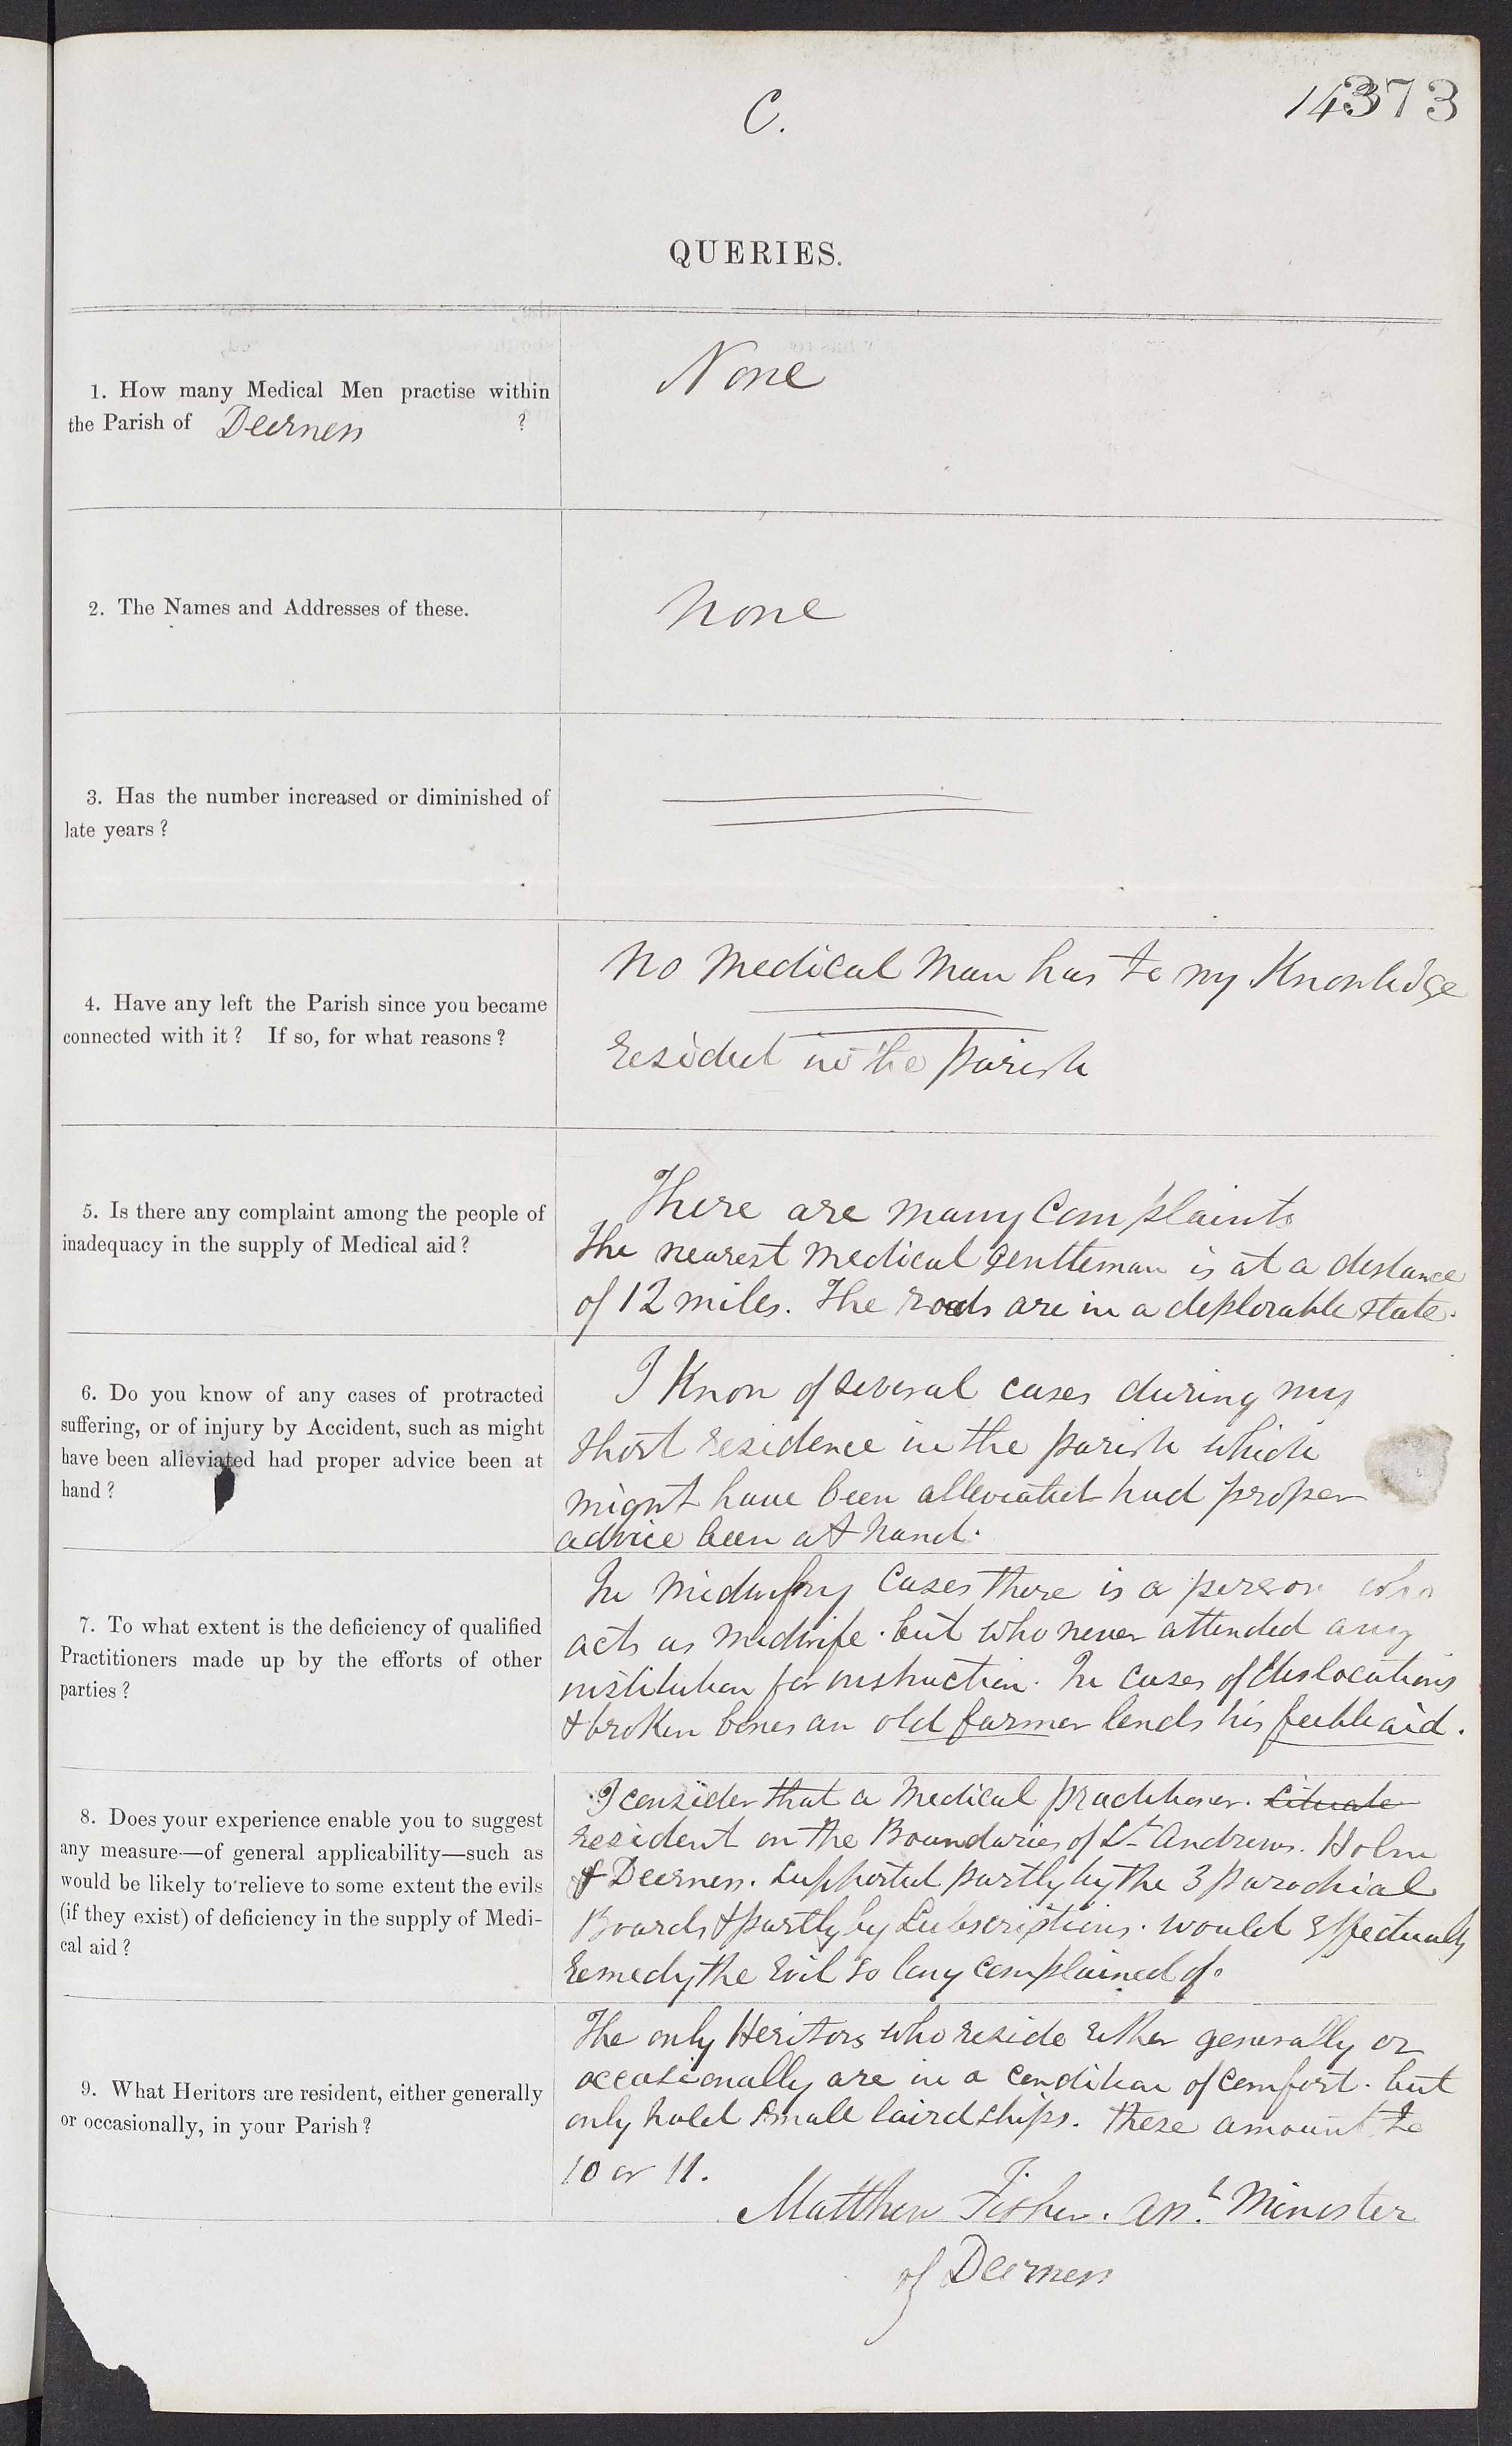 C.
14373
QUERIES.
1. How many Medical Men practise within
the Parish of Deerness ?
None
2. The Names and Addresses of these.
None
3. Has the number increased or diminished of
late years ?
4. Have any left the Parish since you became
connected with it ? If so, for what reasons ?
No Medical Man has to my Knowledge
resided in the Parish
5. Is there any complaint among the people of
inadequacy in the supply of Medical aid ?
There are many Complaints
The nearest Medical Gentleman is at a distance
of 12 miles. The roads are in a deplorable state.
6. Do you know of any cases of protracted
suffering, or of injury by Accident, such as might
have been alleviated had proper advice been at
hand ?
I Know of several cases during my
short residence in the parish which
might have been alleviated had proper
advice been at hand.
7. To what extent is the deficiency of qualified
Practitioners made up by the efforts of other
parties ?
In Midwifry Cases there is a person who
acts as midwife. but who never attended any
institution for instruction. In cases of dislocations
& broken bones an old farmer lends his feeble aid.
8. Does your experience enable you to suggest
any measure—of general applicability—such as
would be likely to relieve to some extent the evils
(if they exist) of deficiency in the supply of Medi-
cal aid ?
I consider that a Medical practitioner. situate
resident on the Boundaries of St Andrews. Holm
& Deerness. supported partly by the 3 parochial
Boards & partly by Subscriptions. would effectually
remedy the evil so long complained of.
9. What Heritors are resident, either generally
or occasionally, in your Parish ?
The only Heritors who reside either generally or
occasionally are in a condition of comfort. but
only hold small lairdships. these amount to
10 or 11.
Matthew Fisher. Asst. Minister
of Deerness